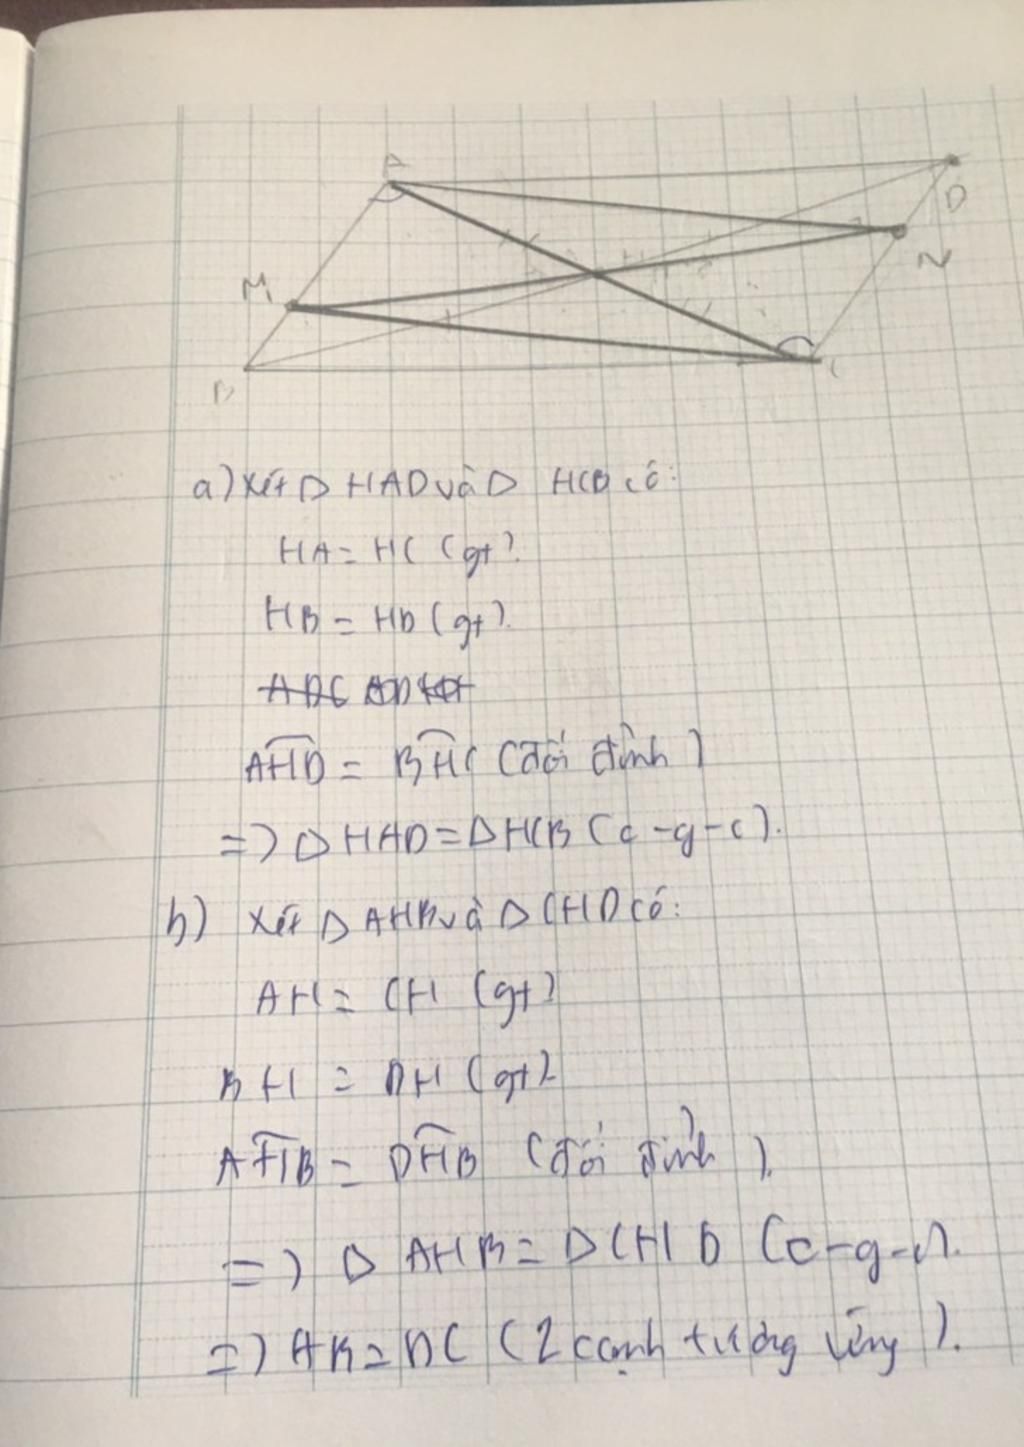 A
D
M
N
B
C
a) Xét Δ HAD và Δ HCB có:
HA = HC (gt).
HB = HD (gt).
AHD = BHC (đối đỉnh)
=> Δ HAD = Δ HCB (c-g-c).
b) Xét Δ AHB và Δ CHD có:
AH = CH (gt)
BH = DH (gt).
AHB = DHB (đối đỉnh).
=> Δ AHB = Δ CHD (c-g-c).
=> AB = DC (2 cạnh tương ứng).